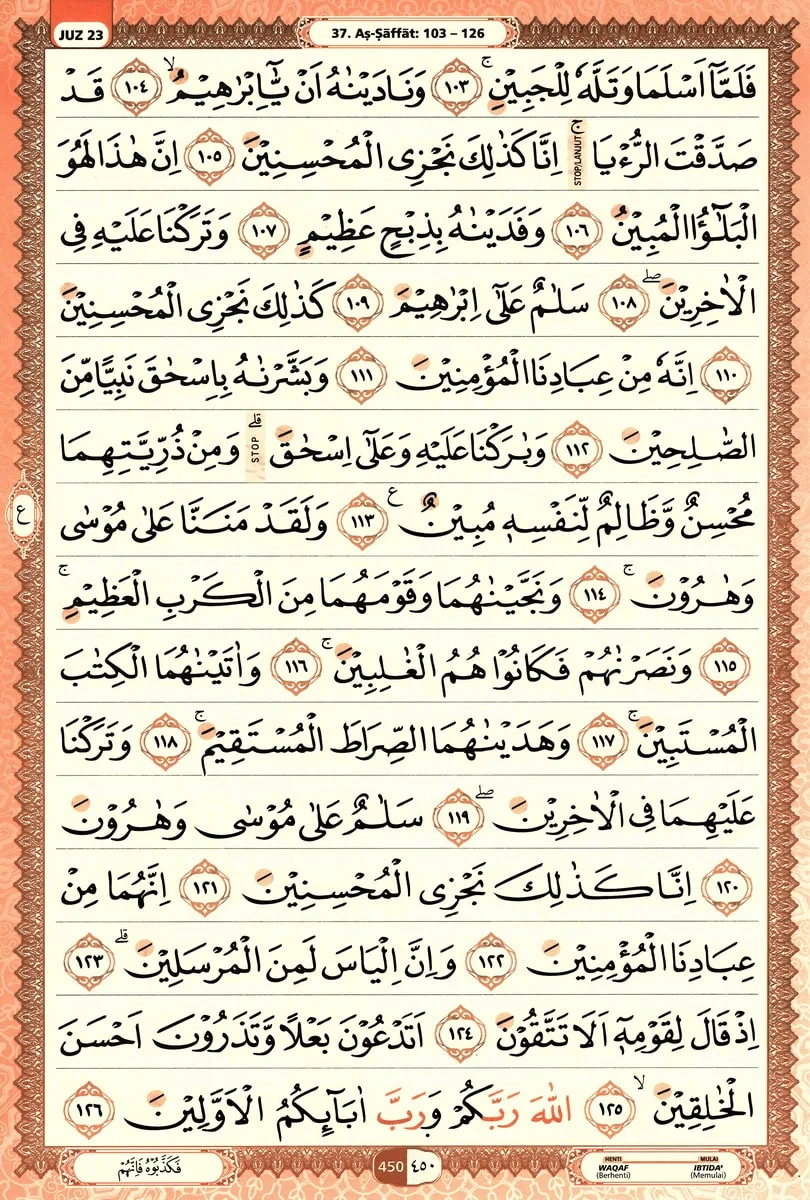 JUZ 23
37. Aṣ-Ṣāffāt: 103 – 126
فَلَمَّآ اَسْلَمَا وَتَلَّهٗ لِلْجَبِيْنِۚ ١٠٣ وَنَادَيْنٰهُ اَنْ يّٰٓاِبْرٰهِيْمُۙ ١٠٤ قَدْ
صَدَّقْتَ الرُّءْيَا ۚ STOP/LANJUT اِنَّا كَذٰلِكَ نَجْزِى الْمُحْسِنِيْنَ ١٠٥ اِنَّ هٰذَا لَهُوَ
الْبَلٰۤؤُا الْمُبِيْنُ ١٠٦ وَفَدَيْنٰهُ بِذِبْحٍ عَظِيْمٍ ١٠٧ وَتَرَكْنَا عَلَيْهِ فِى
الْاٰخِرِيْنَۖ ١٠٨ سَلٰمٌ عَلٰٓى اِبْرٰهِيْمَ ١٠٩ كَذٰلِكَ نَجْزِى الْمُحْسِنِيْنَ
١١٠ اِنَّهٗ مِنْ عِبَادِنَا الْمُؤْمِنِيْنَ ١١١ وَبَشَّرْنٰهُ بِاِسْحٰقَ نَبِيًّا مِّنَ
الصّٰلِحِيْنَ ١١٢ وَبٰرَكْنَا عَلَيْهِ وَعَلٰٓى اِسْحٰقَ ۗ STOP وَمِنْ ذُرِّيَّتِهِمَا
مُحْسِنٌ وَّظَالِمٌ لِّنَفْسِهٖ مُبِيْنٌ ع ١١٣ وَلَقَدْ مَنَنَّا عَلٰى مُوْسٰى
ع
وَهٰرُوْنَۚ ١١٤ وَنَجَّيْنٰهُمَا وَقَوْمَهُمَا مِنَ الْكَرْبِ الْعَظِيْمِۚ
١١٥ وَنَصَرْنٰهُمْ فَكَانُوْا هُمُ الْغٰلِبِيْنَۚ ١١٦ وَاٰتَيْنٰهُمَا الْكِتٰبَ
الْمُسْتَبِيْنَۚ ١١٧ وَهَدَيْنٰهُمَا الصِّرَاطَ الْمُسْتَقِيْمَۚ ١١٨ وَتَرَكْنَا
عَلَيْهِمَا فِى الْاٰخِرِيْنَۖ ١١٩ سَلٰمٌ عَلٰى مُوْسٰى وَهٰرُوْنَ
١٢٠ اِنَّا كَذٰلِكَ نَجْزِى الْمُحْسِنِيْنَ ١٢١ اِنَّهُمَا مِنْ
عِبَادِنَا الْمُؤْمِنِيْنَ ١٢٢ وَاِنَّ اِلْيَاسَ لَمِنَ الْمُرْسَلِيْنَۗ ١٢٣
اِذْ قَالَ لِقَوْمِهٖٓ اَلَا تَتَّقُوْنَ ١٢٤ اَتَدْعُوْنَ بَعْلًا وَّتَذَرُوْنَ اَحْسَنَ
الْخٰلِقِيْنَۙ ١٢٥ اللّٰهَ رَبَّكُمْ وَرَبَّ اٰبَاۤىِٕكُمُ الْاَوَّلِيْنَ ١٢٦
فَكَذَّبُوْهُ فَاِنَّهُمْ
450 ٤٥٠
HENTI WAQAF (Berhenti)
MULAI IBTIDA' (Memulai)